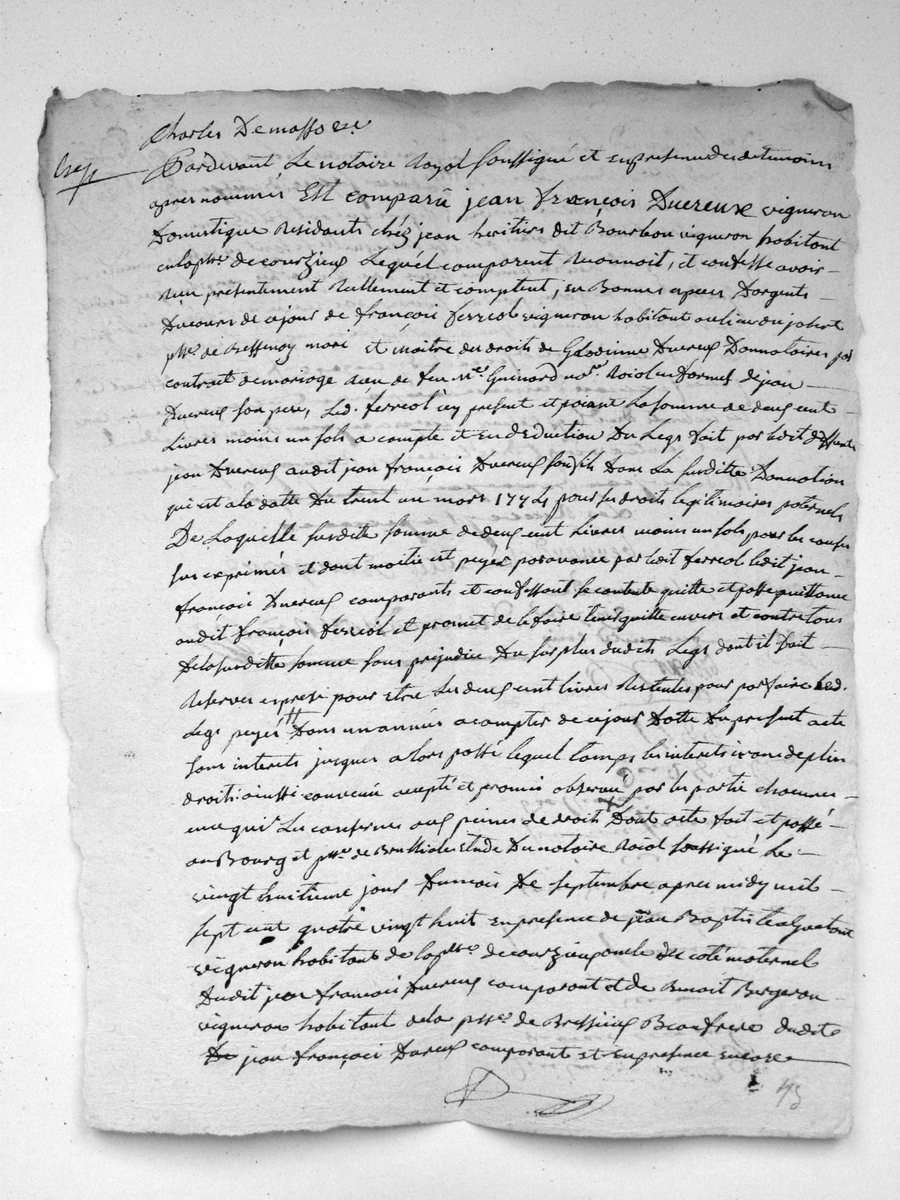 Charles Demasso &c.
Pardevant Le notaire Royal soussigné et en presence des temoins
apres nommés Est comparû jean françois Ducreux vigneron
Domestique Residants chéz jean heritier dit Bourbon vigneron habitant
en la psse. de courzieu Lequél comparent Reconnoit, et confesse avoir
Reçu présentement Reëllement et comptent, en Bonnes especes Dargents
Ducours de cejour de françois ferreol vigneron habitant au lieu du
psse. de Bessenay mari et maitre des droits de Glodinne Ducreux Donnataires par
contrat de mariage Reçu de feu Me. Guinard nore. Roial en formes de jean
Ducreux son pere, Led. ferreol icy présent et paiant La somme de deux cent
Livres moins un sols a compte et en deduction Du Legs fait par ledit deffunt
jean Ducreux audit jean françois Ducreux son fils Dans La susditte Donnation
qui est a la datte Du trent un mars 177 pour ses droits Legitimaires paternels
De Laquelle susditte somme de deux cent Livres moins un sols pour les causes
sus exprimés et dont moitié est payés par avance par ledit ferreol ledit jean
françois Ducreux comparants et confessant se contente quitte et passe quittance
audit françois ferreol et promet de le faire tenir quitte envers et contre tous
De la susditte somme sans préjudice Du surplus dudits Legs dont il fait
Reserves expresse pour etre Les deux cent livres Restentes pour parfaire Led.
Legs payés Dans un année a compter de cejour Datte Du present acte
sans interets jusques alors passé lequel temps les interets de plin
droit ainssi convenu accepté et promis observé par les partie chacunes
en ce qui Les confernes aux peines de droit Dont acte fait et passé
au Bourg et psse. de Brussieu Etude Du notaire Roial soussigné Le
vingt huitieme jour Dumois De septembre apres midy mil
sept cent quatre vingt huit en presence de jean Baptiste
vigneron habitant de la psse. de courzieu oncle de coté maternel
Dudit jean francois Ducreux comparant et de Benoit Bergeron
vigneron habitant de la psse. de Bressieux Beaufrere dudit
jean françois Ducreux comparants et en presence encore